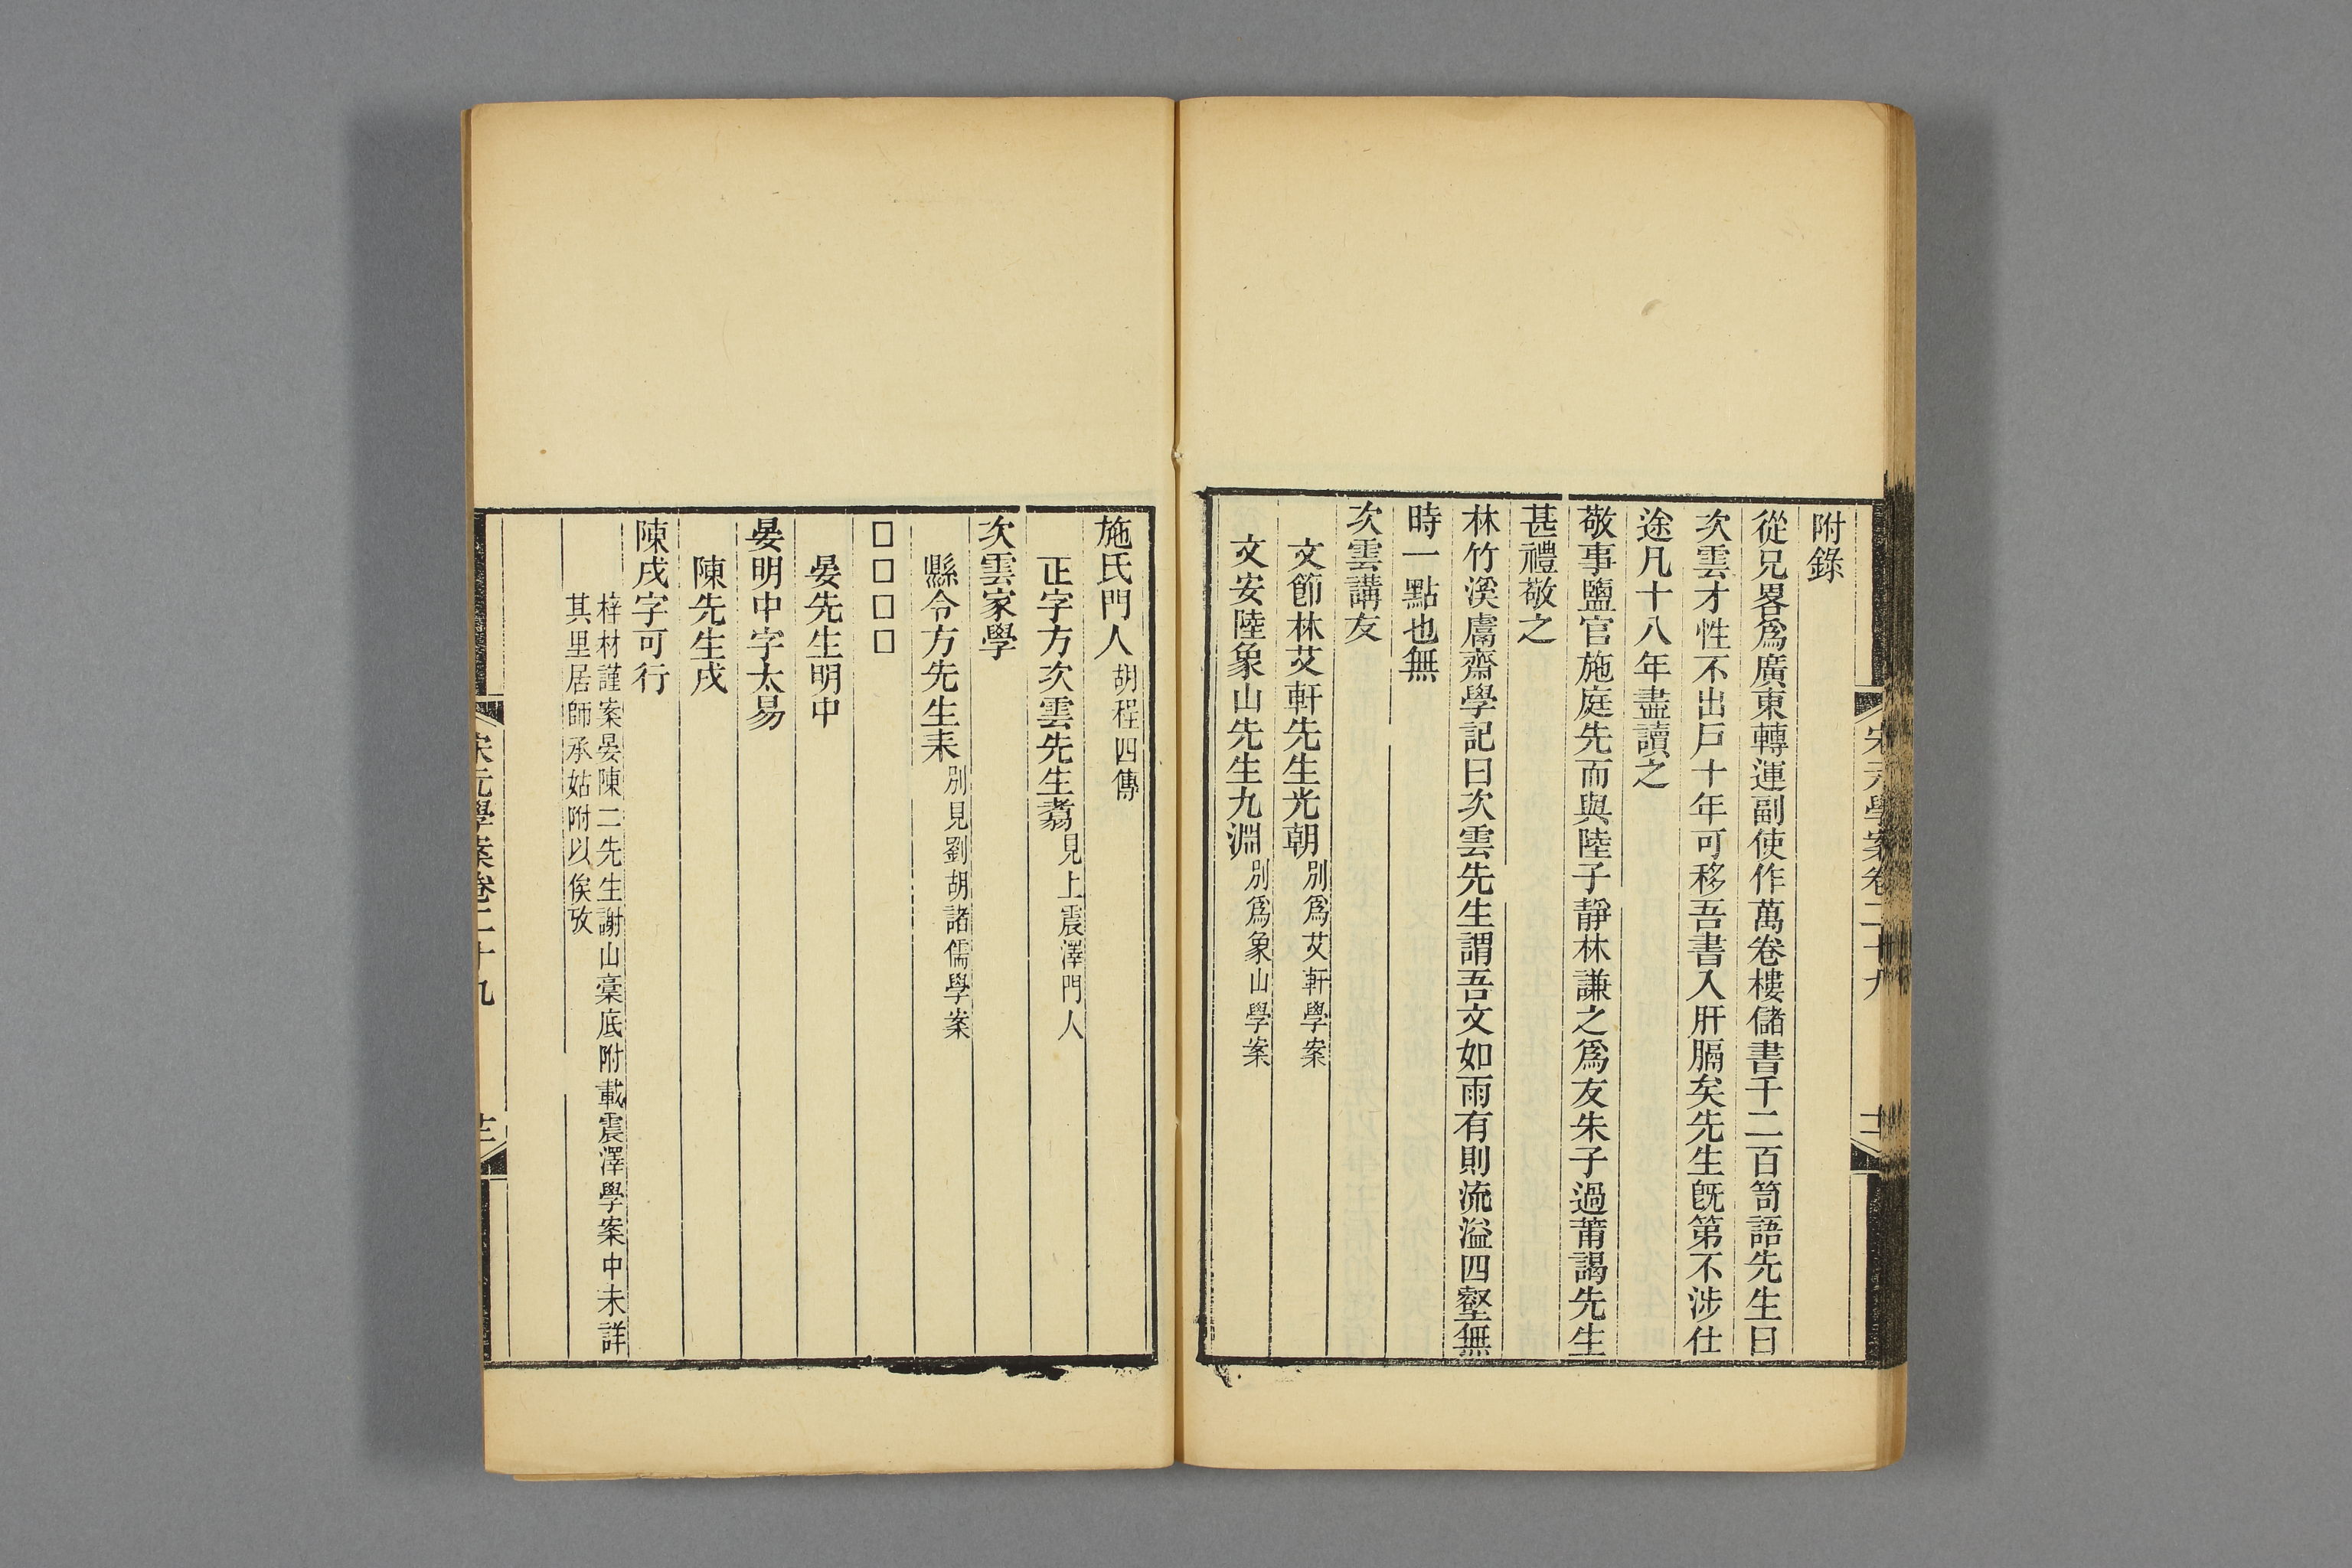 附錄
從兄畧爲廣東轉運副使作萬卷樓儲書千二百笥語先生曰
次雲才性不出戸十年可移吾書入肝膈矣先生旣第不涉仕
途凡十八年盡讀之
敬事鹽官施庭先而與陸子靜林謙之爲友朱子過莆謁先生
甚禮敬之
林竹溪鬳齋學記曰次雲先生謂吾文如雨有則流溢四壑無
時一點也無
次雲講友
文節林艾軒先生光朝別爲艾軒學案
文安陸象山先生九淵別爲象山學案
宋元學案卷二十九
施氏門人胡程四傳
正字方次雲先生翥見上震澤門人
次雲家學
縣令方先生耒別見劉胡諸儒學案
□□□□
晏先生明中
晏明中字太易
陳先生戌
陳戌字可行
梓材謹案晏陳二先生謝山稾底附載震澤學案中未詳
其里居師承姑附以俟攷
宋元學案卷二十九